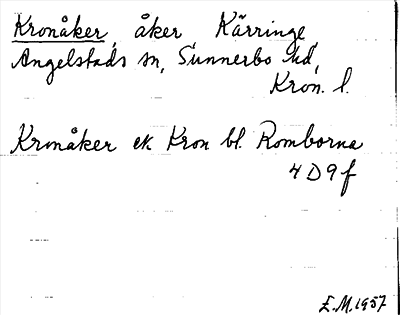 Kronåker, åker Kärringe,
Angelstads sn, Sunnerbo hd,
Kron. l.
Kronåker ek. Kron bl. Romborna
4D9f
E.M. 1957